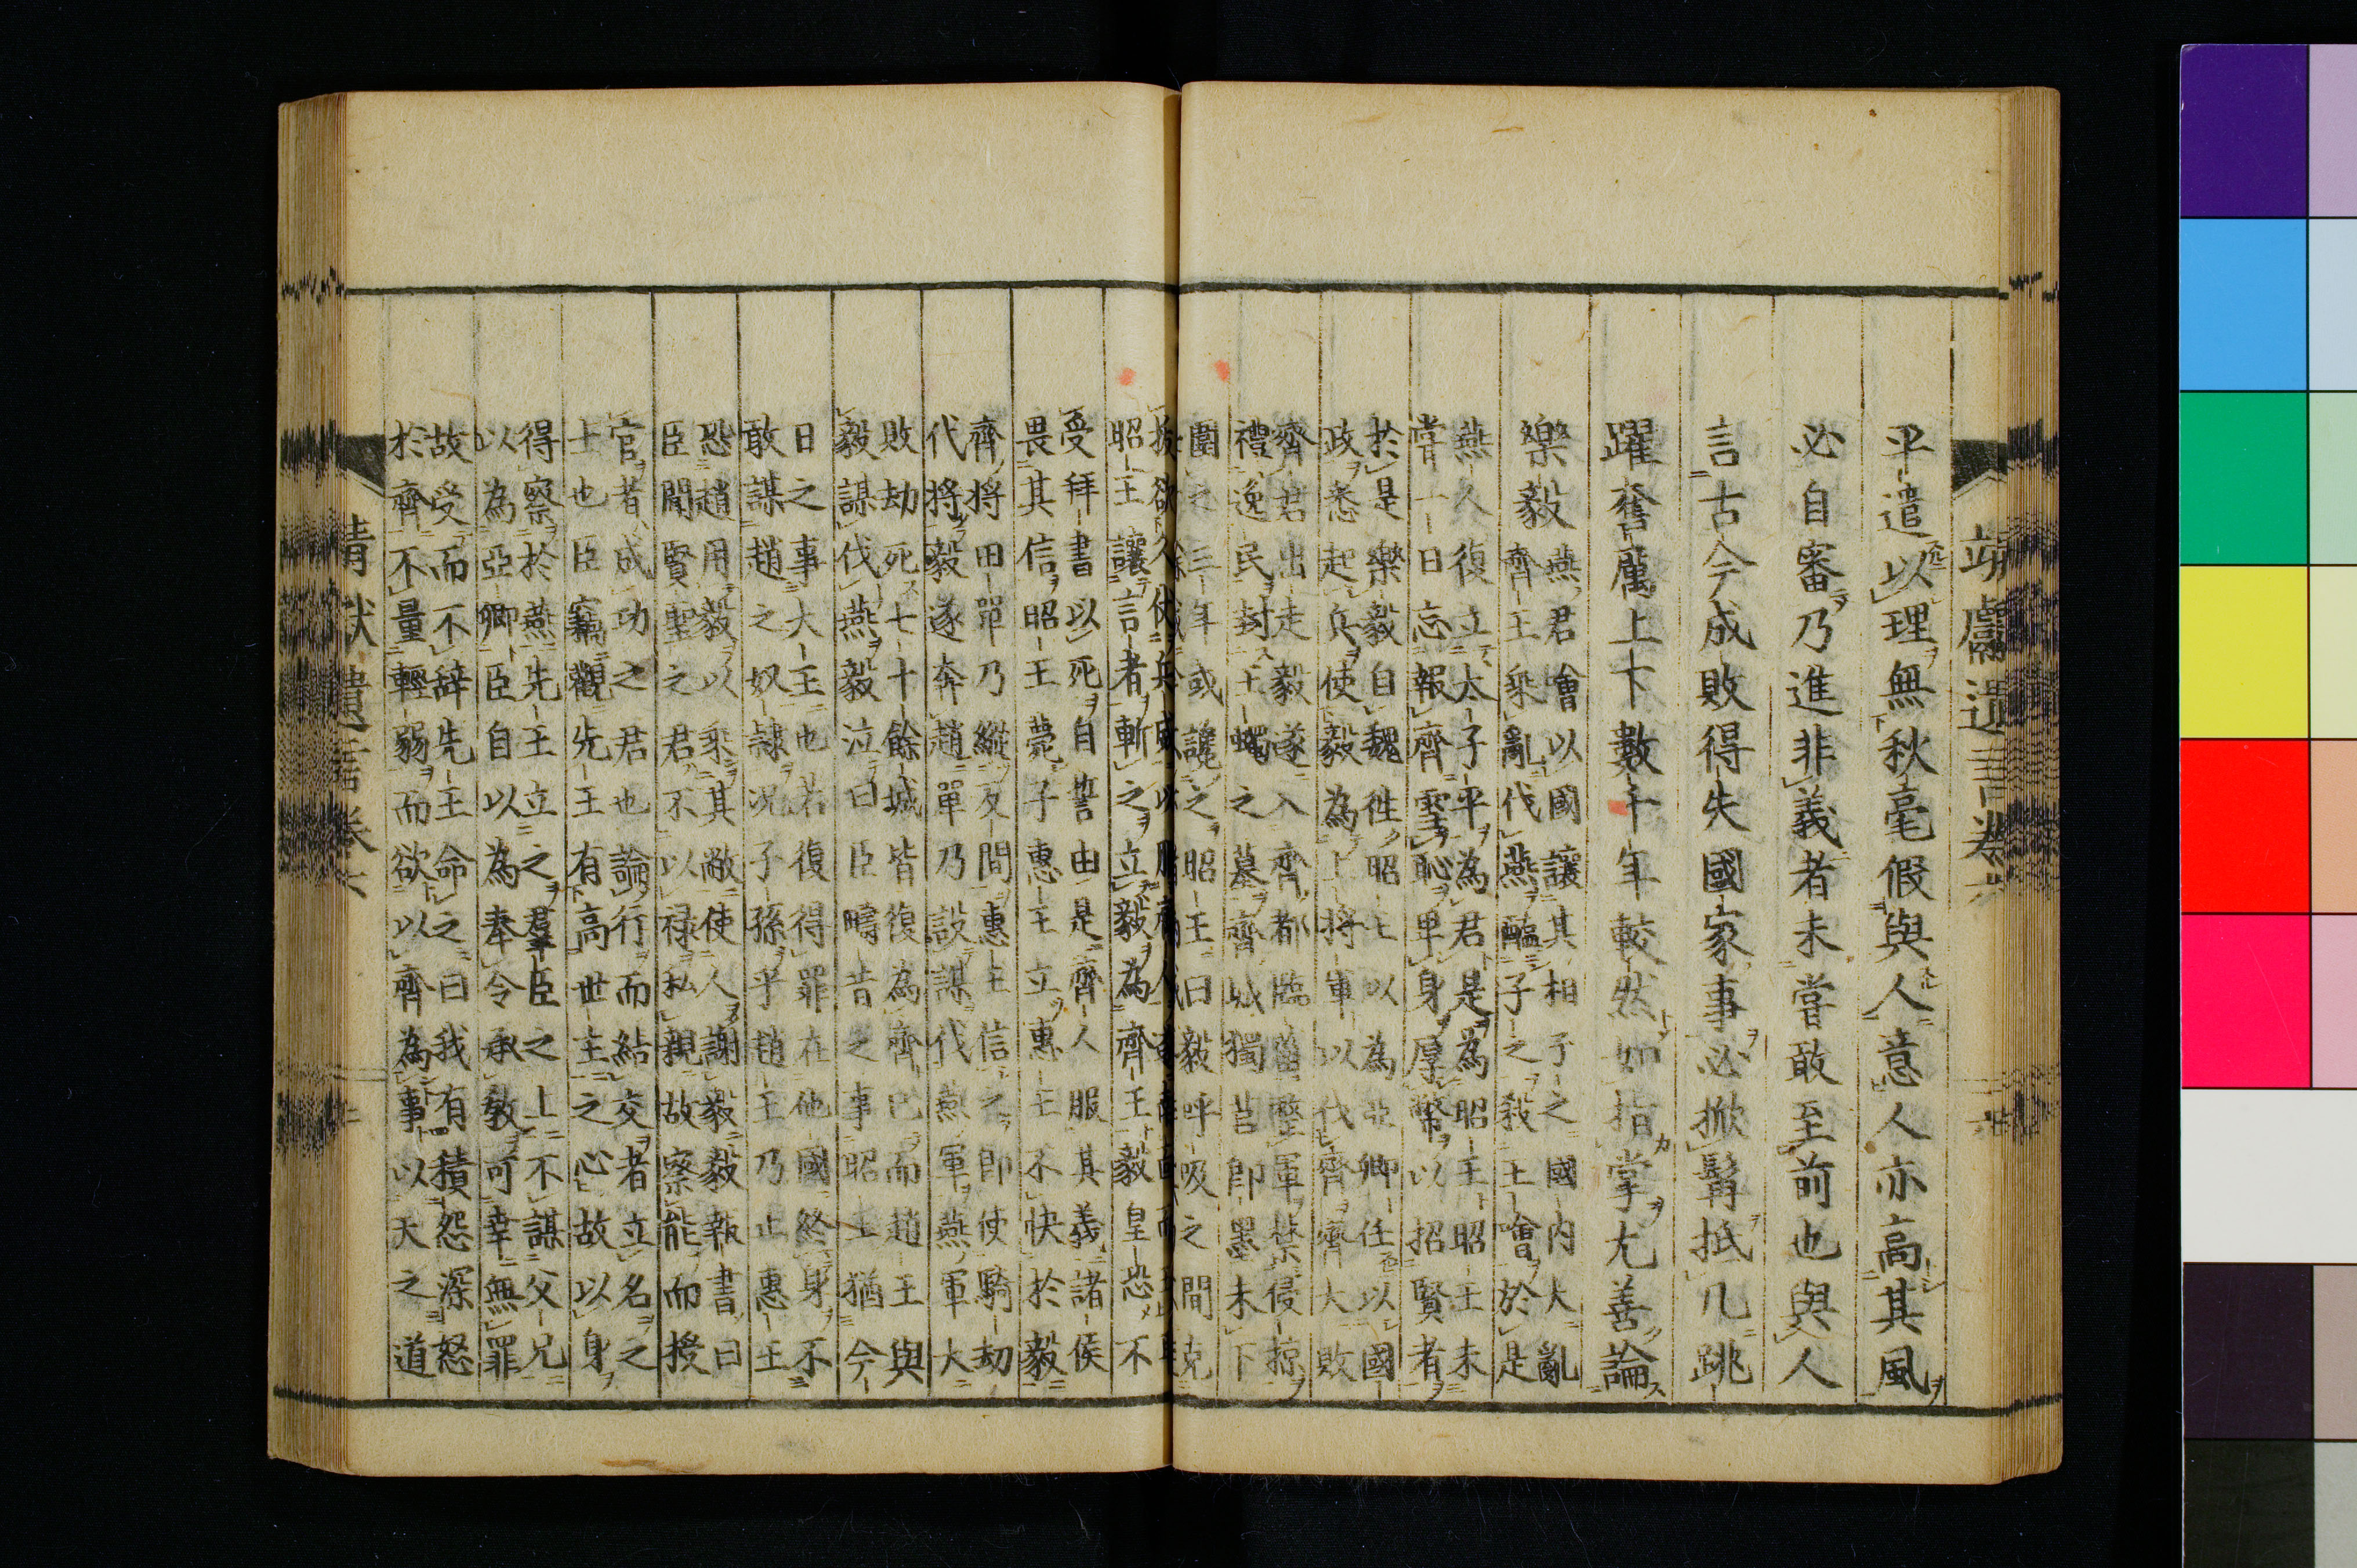 平遣以理無秋毫假與人意人亦高其風
必自審乃進非義者未嘗敢至前也與人
言古今成敗得失國家事必掀髯抵几跳
躍奮厲上下數千年較然如指掌尤善論
樂毅
燕君噲以國讓其相子之國内大亂
齊王乘亂伐燕醢子之殺王噲於是
燕人復立太子平為君是為昭王昭王未
嘗一日忘報齊雪恥卑身厚幣以招賢者
於是樂毅自魏徃昭王以為亞卿任以國
政悉起兵使毅為上將軍以伐齊齊大敗
齊君出走毅遂入齊都臨淄整軍禁侵掠
禮逸民封王蠋之墓齊城獨莒即墨未下
圍之三年或讒之昭王曰毅呼吸之間克
昭王讓言者斬之立毅為齊王毅皇恐不
受拜書以死自誓由是齊人服其義諸侯
畏其信昭王薨子惠王立惠王不快於毅
齊將田單乃縱反間惠王信之即使騎劫
代將毅遂奔趙單乃設謀伐燕軍燕軍大
敗劫死七十餘城皆復為齊已而趙王與
毅謀伐燕毅泣曰臣疇昔之事昭王猶今
日之事大王也若復得罪在他國終身不
敢謀趙之奴隷况子孫乎趙王乃止惠王
恐趙用毅以乘其敝使人謝毅毅報書曰
臣聞賢聖之君不以禄私親故察能而授
官者成功之君也論行而結交者立名之
士也臣竊觀先王有高世主之心故以身
得察於燕先王立之羣臣之上不謀父兄
以為亞卿臣自以為奉令承教可幸無罪
故受而不辭先王命之曰我有積怨深怒
於齊不量輕弱而欲以齊為事以天之道